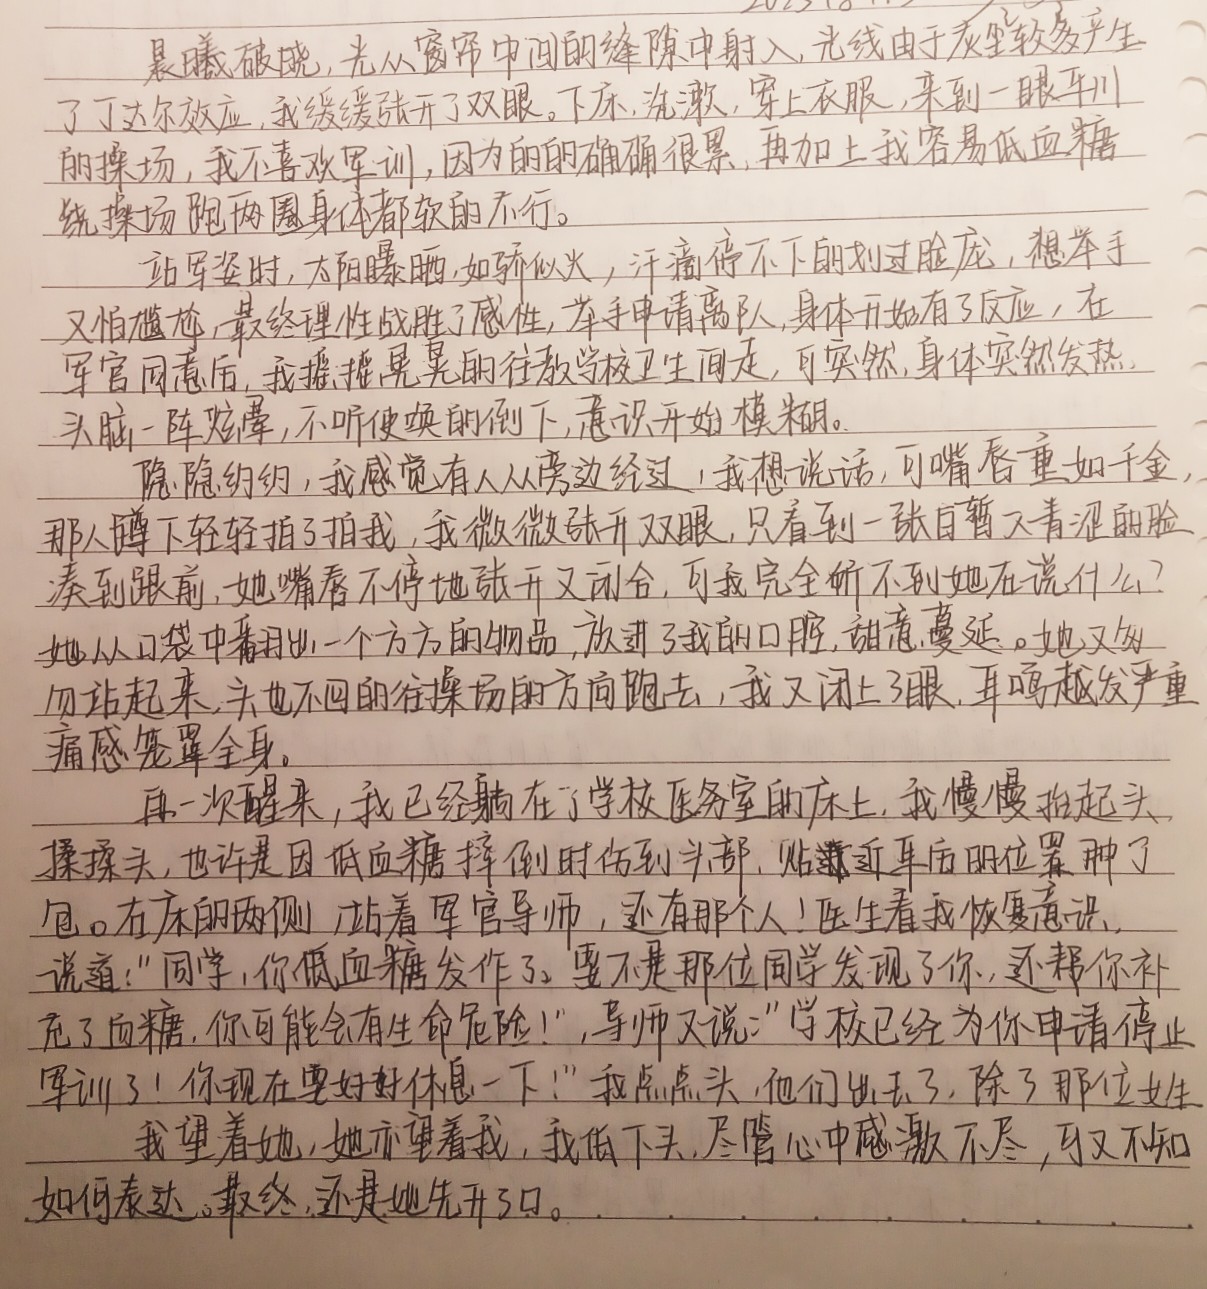 晨曦破晓,光从窗帘中间的缝隙中射入,光线由于灰尘较多产生
了丁达尔效应,我缓缓张开了双眼。下床,洗漱,穿上衣服,来到一眼平川
的操场,我不喜欢军训,因为的的确确很累,再加上我容易低血糖
绕操场跑两圈身体都软的不行。
站军姿时,太阳曝晒,如骄似火,汗滴停不下的划过脸庞,想举手
又怕尴尬,最终理性战胜了感性,举手申请离队,身体开始有了反应,在
军官同意后,我摇摇晃晃的往教学校卫生间走,可突然,身体突然发热,
头脑一阵炫晕,不听使唤的倒下,意识开始模糊。
隐隐约约,我感觉有人从旁边经过,我想说话,可嘴唇重如千金,
那人蹲下轻轻拍了拍我,我微微张开双眼,只看到一张白皙又青涩的脸
凑到跟前,她嘴唇不停地张开又闭合,可我完全听不到她在说什么?
她从口袋中翻出一个方方的物品,放进了我的口腔,甜意蔓延。她又匆
匆站起来,头也不回的往操场的方向跑去,我又闭上了眼,耳鸣越发严重
痛感笼罩全身。
再一次醒来,我已经躺在了学校医务室的床上,我慢慢抬起头,
揉揉头,也许是因低血糖摔倒时伤到头部,贴近耳后的位置肿了
包。在床的两侧,站着军官导师,还有那个人!医生看我恢复意识,
说道:"同学,你低血糖发作了。要不是那位同学发现了你,还帮你补
充了血糖,你可能会有生命危险!",导师又说:"学校已经为你申请停止
军训了!你现在要好好休息一下!"我点点头,他们出去了,除了那位女生
我望着她,她亦望着我,我低下头,尽管心中感激不尽,可又不知
如何表达。最终,还是她先开了口。